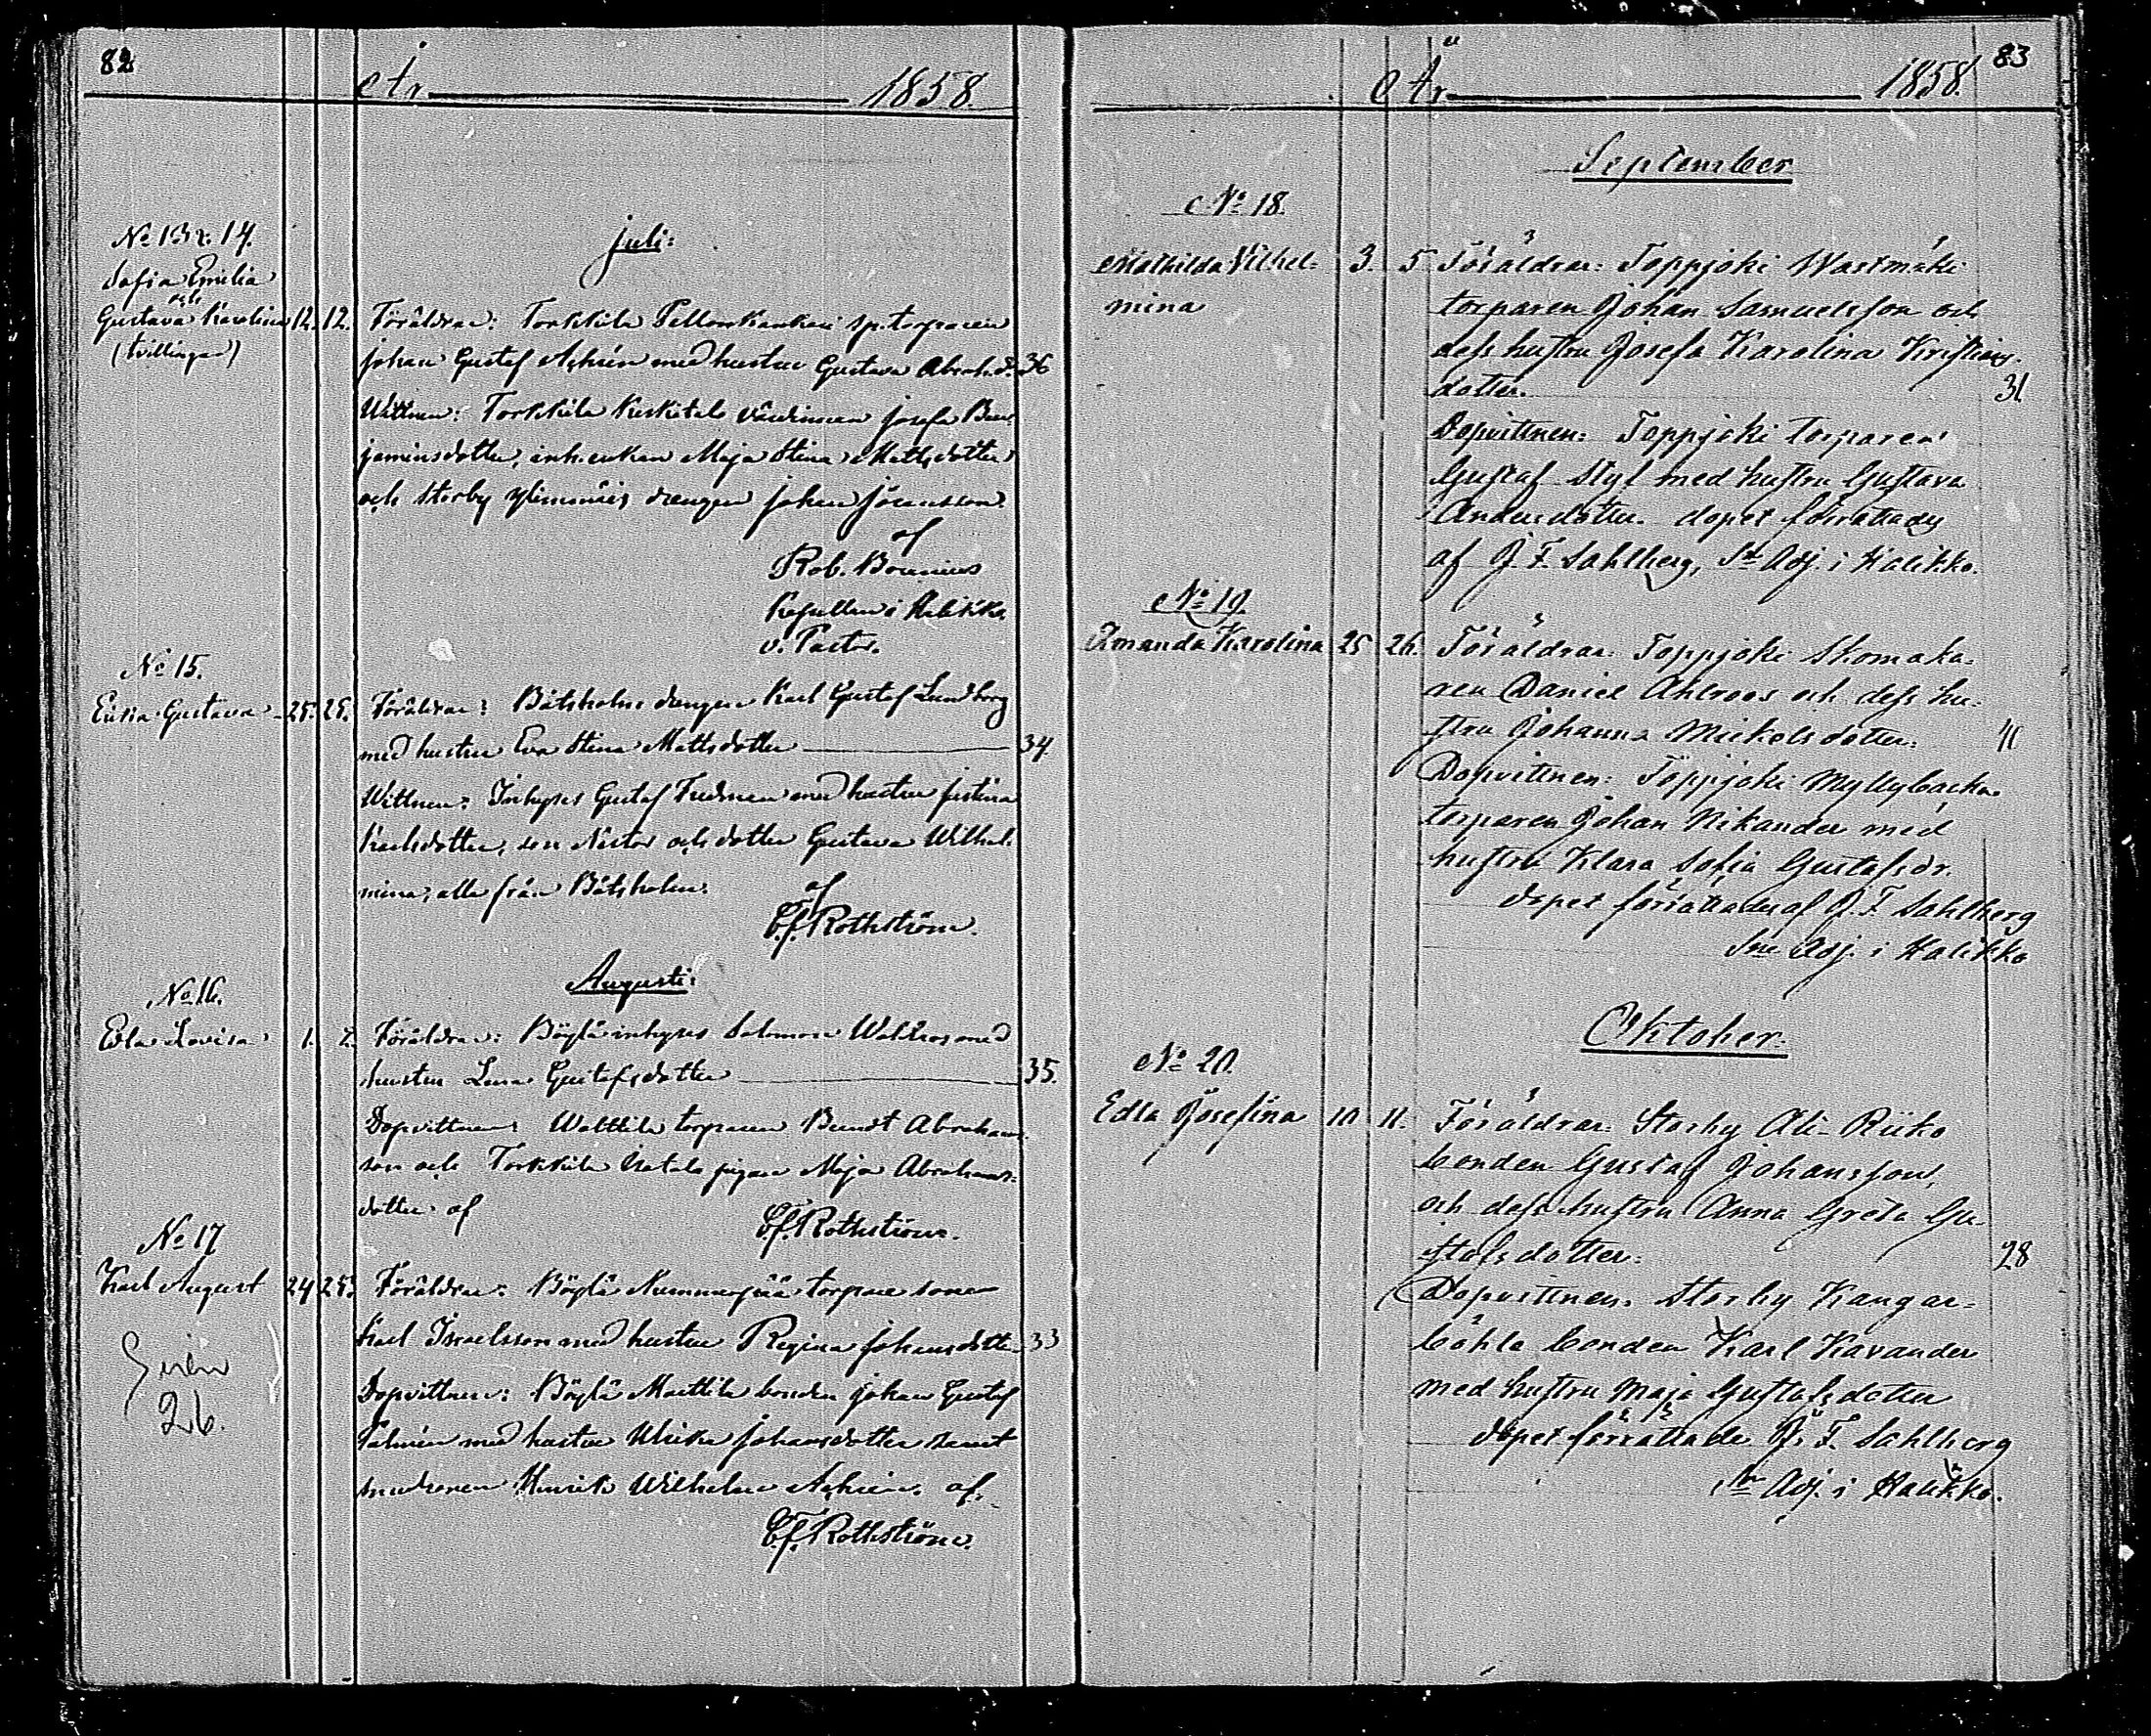 82
År 1858.
Juli:
No 13 & 14.
Sofia Emilia
och
Gustava Karolina 12. 12. Föräldrar: Torkkila Pellonkankari sp. torparen
(tvillingar)
Johan Gustaf Achrén med hustru Gustava Abrah.d. 36
Wittnen: Torkkila Keskitalo värdinnan Josefa Ben-
jaminsdotter, inh. enkan Maja Stina Mattsdotter
och Storby Ylimmäis drengen Johan Göransson.
af
Rob. Bonnius
Kapellan i Halikko.
v. Pastor.
No 15.
Erika Gustava 25. 25. Föräldrar: Båtsholm drengen Karl Gustaf Lundborg
med hustru Eva Stina Mattsdotter 34
Wittnen: Inhyses Gustaf Fredman med hustru Justina
Karlsdotter, son Nestor och dotter Gustava Wilhel-
mina, alla från Båtsholm.
af
C.J. Rothström.
Augusti:
No 16.
Edla Lovisa 1. 2. Föräldrar: Böylä inhyses Salomon Wahlros med
hustru Lena Gustafsdotter 35.
Dopvittnen: Walttila torparen Bendt Abrahams-
son och Torkkila Uotalo pigan Maja Abrahams-
dotter af
C.J. Rothström.
No 17
Karl August 24 25. Föräldrar: Böylä Nummenpää torpare sonen
Karl Israelsson med hustru Regina Johansdotter 33
Dopvittnen: Böylä Marttila bonden Johan Gustaf
Palmén med hustru Ulrika Johansdotter samt
Henrik Wilhelm Achrén. af
26.
C.J. Rothström.
83
År 1858.
September
No 18.
Mathilda Vilhel- 3. 5 Föräldrar: Toppjoki Wastmäki
mina torparen Johan Samuelsson och
dess hustru Josefa Karolina Kristians-
dotter. 31
Dopvittnen: Toppjoki torparen
Gustaf Styl med hustru Gustava
Andersdotter. dopet förrättades
af J. F. Sahlberg, Sn Adj. i Halikko.
No 19.
Amanda Karolina 25 26. Föräldrar: Toppjoki Skomaka-
ren Daniel Ahlroos och dess hu-
stru Johanna Mickelsdotter. 40
Dopvittnen: Toppjoki Myllybacka
torparen Johan Nikander med
hustru Klara Sofia Gustafsdr.
dopet förrättades af J. F. Sahlberg
Sne Adj. i Halikko
Oktober.
No 20.
Edla Josefina 10 11. Föräldrar Storby Ali-Riiko
bonden Gustaf Johansson,
och dess hustru Anna Greta Gu-
stafsdotter. 28
Dopvittnen. Storby Kangar-
böhle bonden Karl Kavander
med hustru Maja Gustafsdotter
dopet förrättade J. F. Sahlberg
Sn Adj. i Halikko.